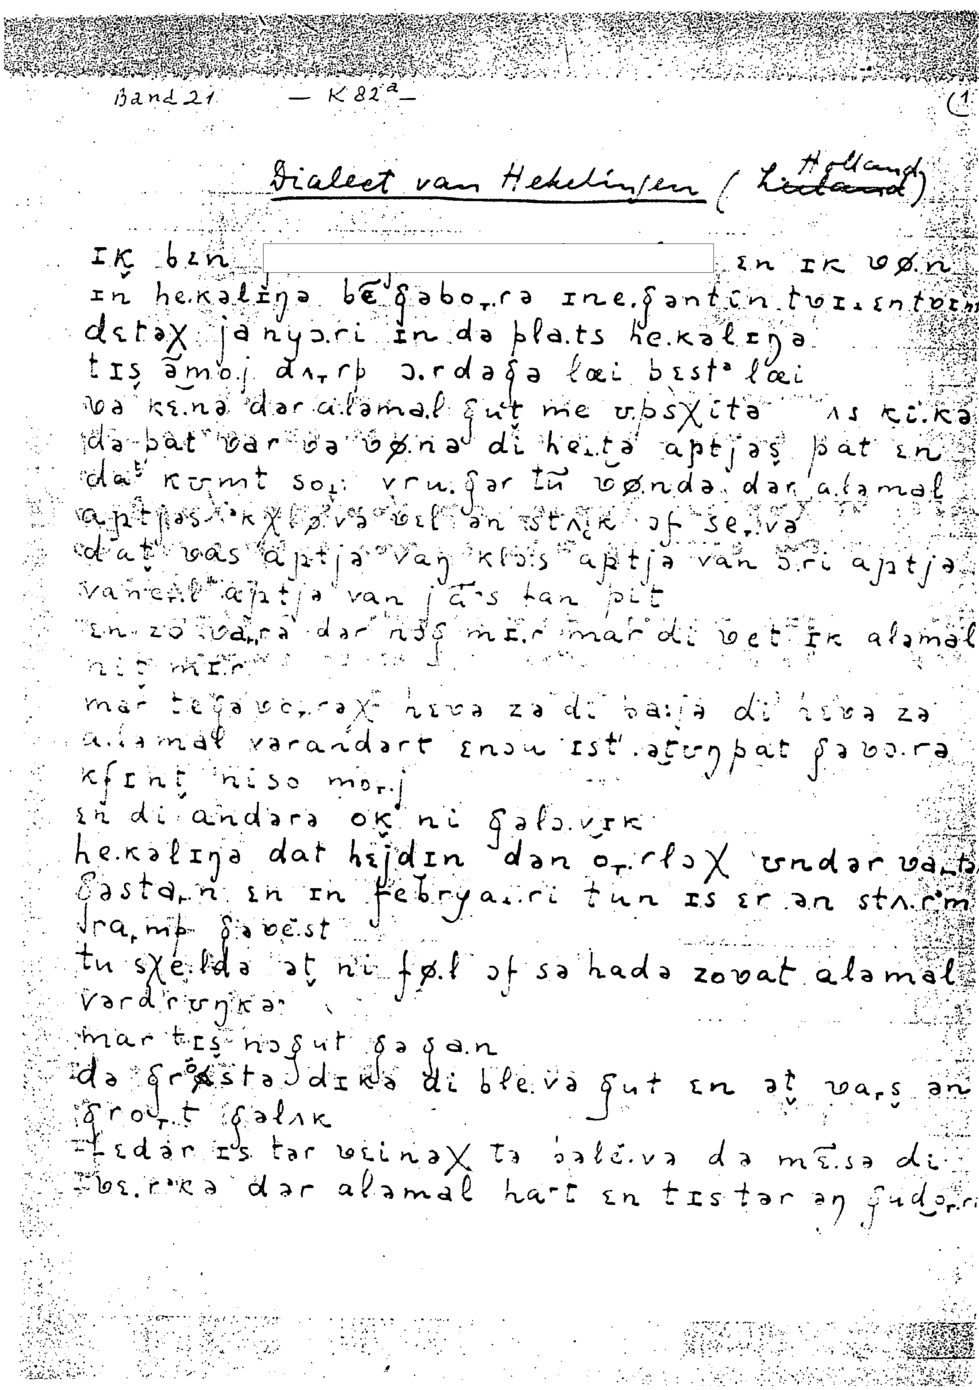 Band 21 — K 82ª — (1
Dialect van Hekelingen (Holland)
ɪk bɛn ɛn ɪk ʋø.n
ɪn he.kəlɪŋə bɛ̃ ɡəbo.rə ɪne.ɡəntin
dɛtəχ janyɔ.ri in də pla.ts he.kəlɪŋə
tɪs ãmo.j dʌ.rp ɔ.rdəɡə lœi bɛstə lœi
ʋə kɛ.nə dər a.ləmal ɡut me ʋpsχitə ʌs ki.kə
də pat ʋar ʋə ʋø.nə di he.tə aptjəs pat ɛn
dat kʊmt so.: vru.ɡər tũ ʋøndə dər a.ləmal
aptjəs kχløvə ʋɛl ən stʌk ɔf se.və
dat ʋas aptjə vaŋ klɔ:s aptjə van ɔ.ri aptjə
aptjə van jã.s tan pit
ɛn zo ʋa.rə dər nɔɡ mɪ.r mar di ʋet ɪk aləmal
nit mɪ.r
mar heʋə zə di di heʋə zə
a.ləmal vərandərt ɛnɔu ɪst ətʊŋpat ɡəʋɔ.rə
kfɪnt niso mo.j
ɛn di andərə ok ni ɡəlɔ.v ɪk
he.kəlɪŋə dat hɛjdɪn dən o.rlɔχ ʊndər ʋa.tə
ɡəsta.n ɛn ɪn febrya.ri tun ɪs ɛr ən stʌ.rm
ra.mp ɡəʋest
tu sχe.ldə ət ni fø.l ɔf sə hadə zoʋat aləmal
vərdrʊŋkə
mar tɪs nɔɡut ɡəɡa.n
də ɡrøstə dɪkə di ble.və ɡut ɛn ət ʋa.s ən
ɡro.t ɡəlʌk
ledər ɪs tər ʋɛinəχ tə bəle.və də mɛ̃.sə di
ʋɛ.rkə dər aləmal ha.t ɛn tɪs tər əŋ ɡudo.ri